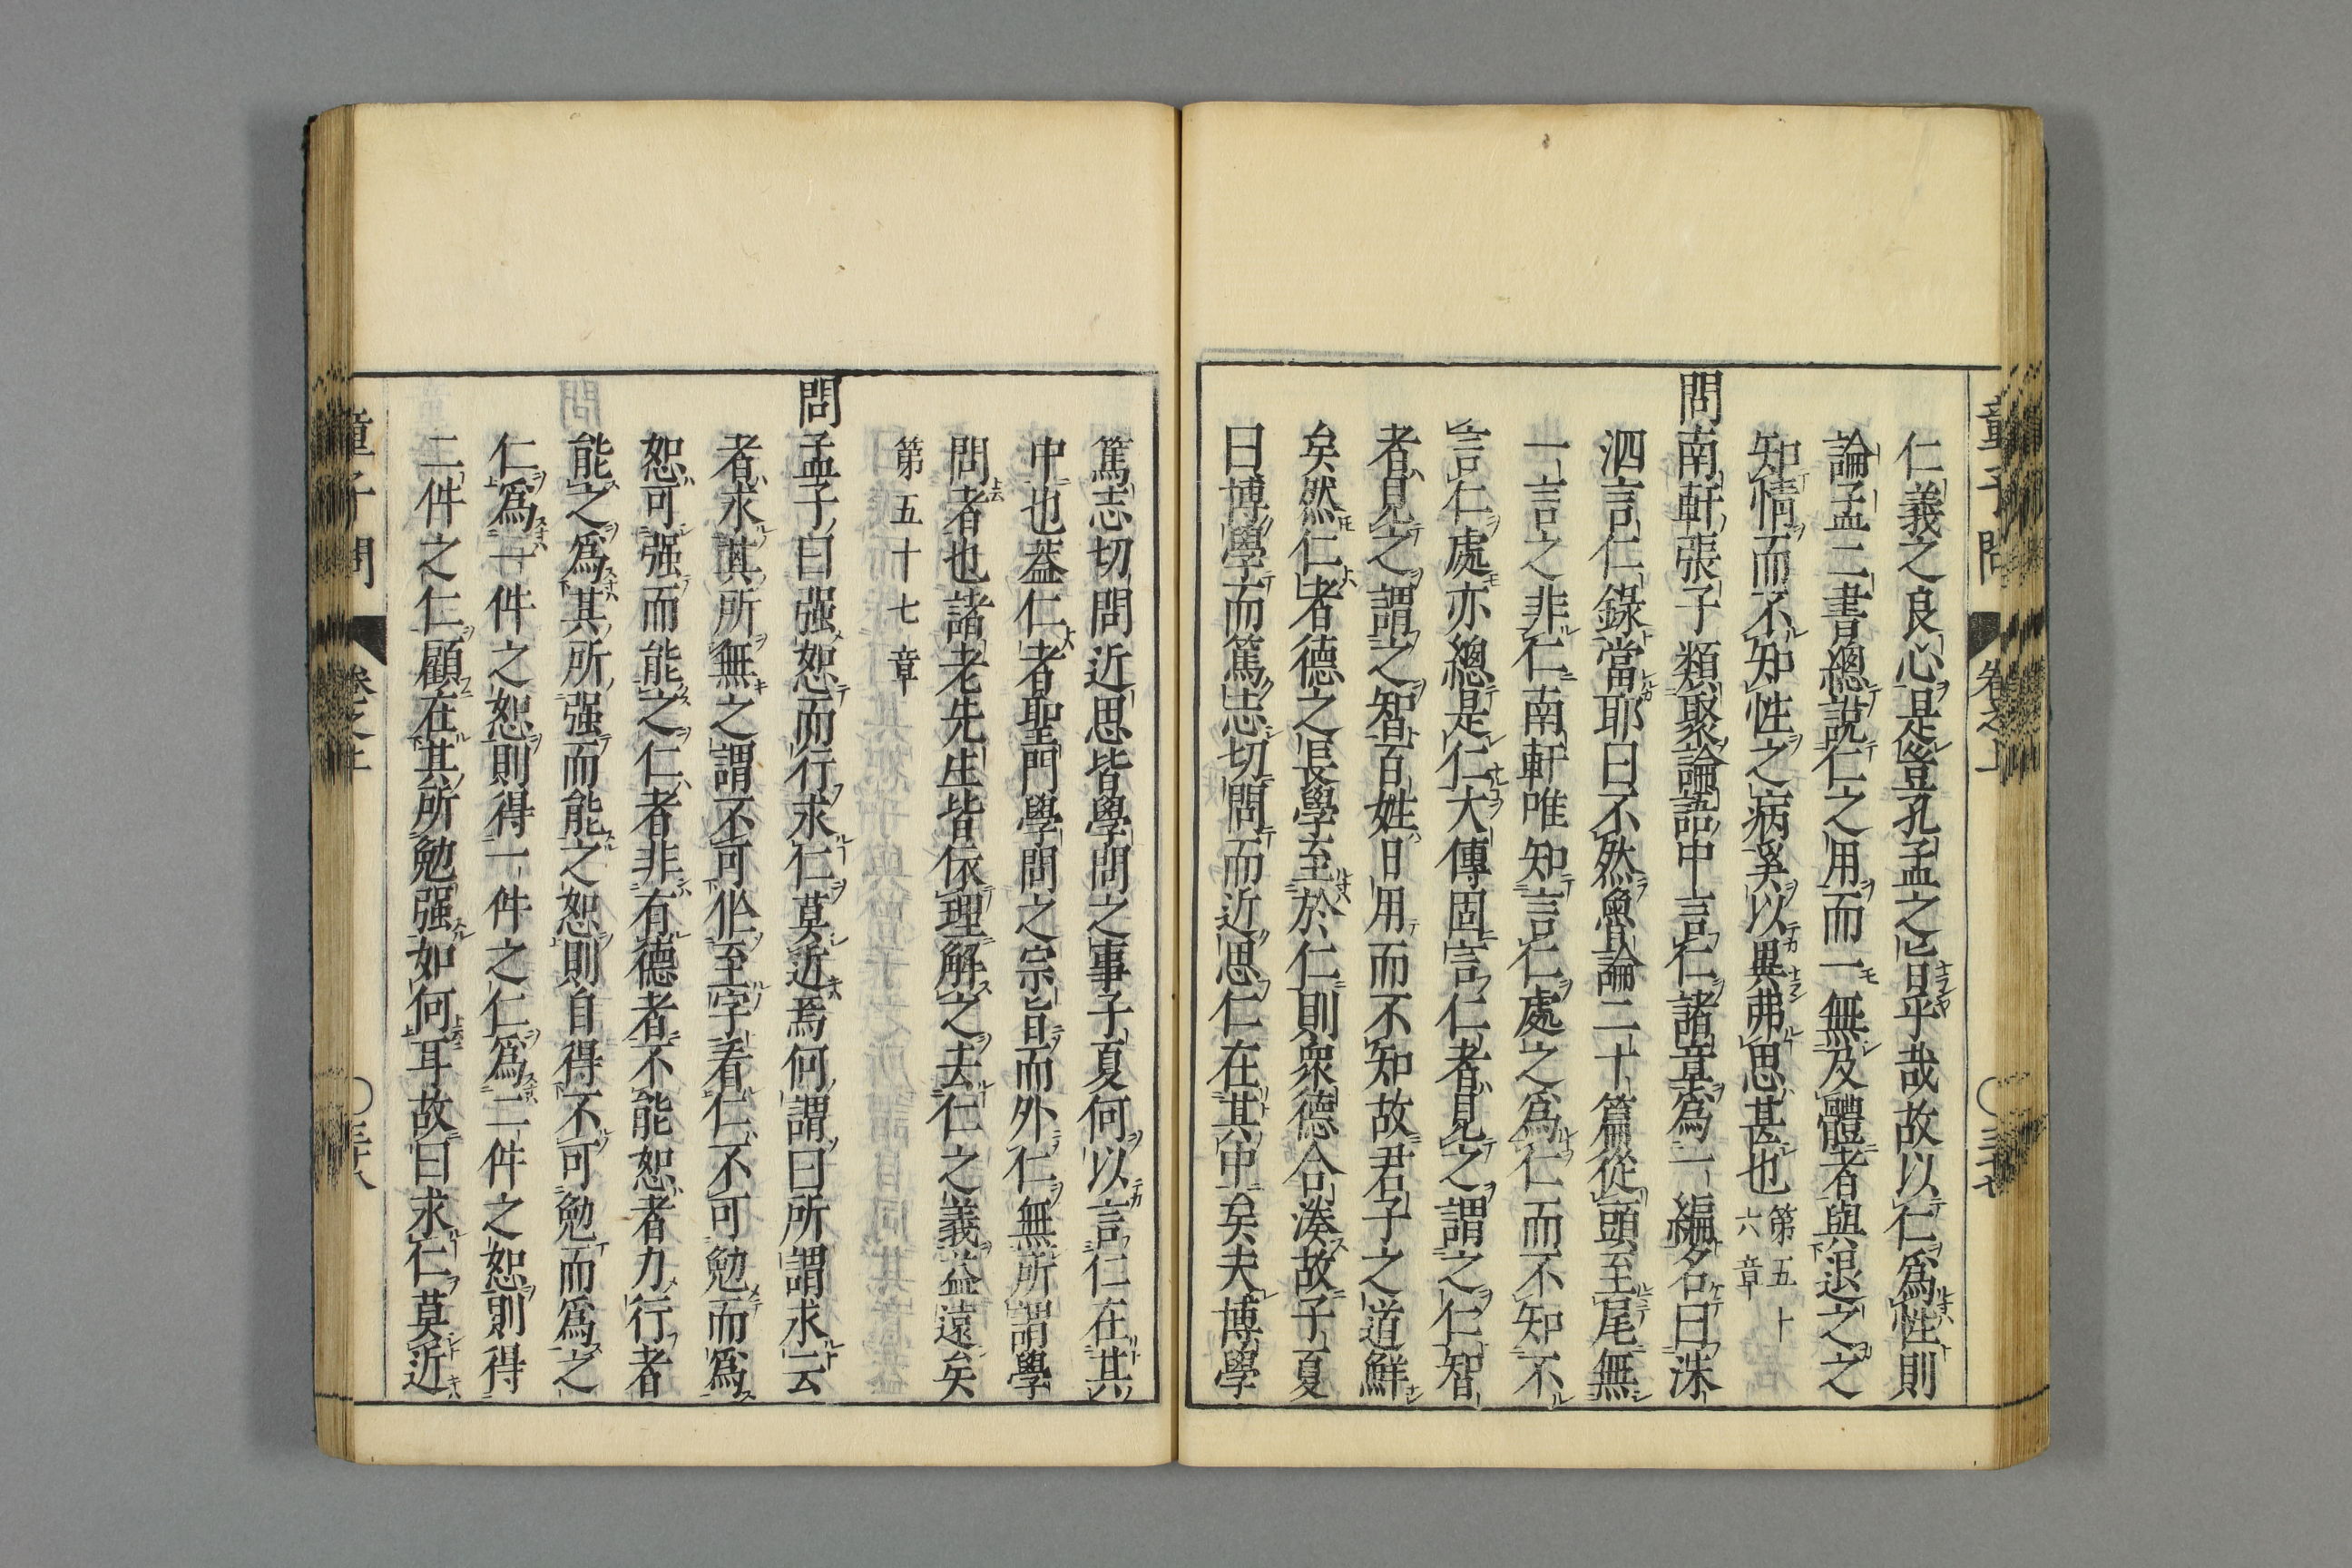 仁義之良心是豈孔孟之旨乎哉故以仁爲性則
論孟二書總說仁之用而一無及體者與退之之
知情而不知性之病奚以異弗思甚也第五十六章
問南軒張子類聚論語中言仁諸章爲一編名曰洙
泗言仁錄當耶曰不然魯論二十篇從頭至尾無
一言之非仁南軒唯知言仁處之爲仁而不知不
言仁處亦總是仁大傳固言仁者見之謂之仁智
者見之謂之智百姓日用而不知故君子之道鮮
矣然仁者德之長學至於仁則衆德合湊故子夏
曰博學而篤志切問而近思仁在其中矣夫博學
童子問
卷之上
篤志切問近思皆學問之事子夏何以言仁在其
中也蓋仁者聖門學問之宗旨而外仁無所謂學
問者也諸老先生皆依理解之去仁之義益遠矣
第五十七章
問孟子曰强恕而行求仁莫近焉何謂曰所謂求云
者求其所無之謂不可作至字看仁不可勉而爲
恕可强而能之仁者非有德者不能恕者力行者
能之爲其所强而能之恕則自得不可勉而爲之
仁爲一件之恕則得一件之仁爲二件之恕則得
二件之仁顧在其所勉强如何耳故曰求仁莫近
童子問
卷之上
三十八